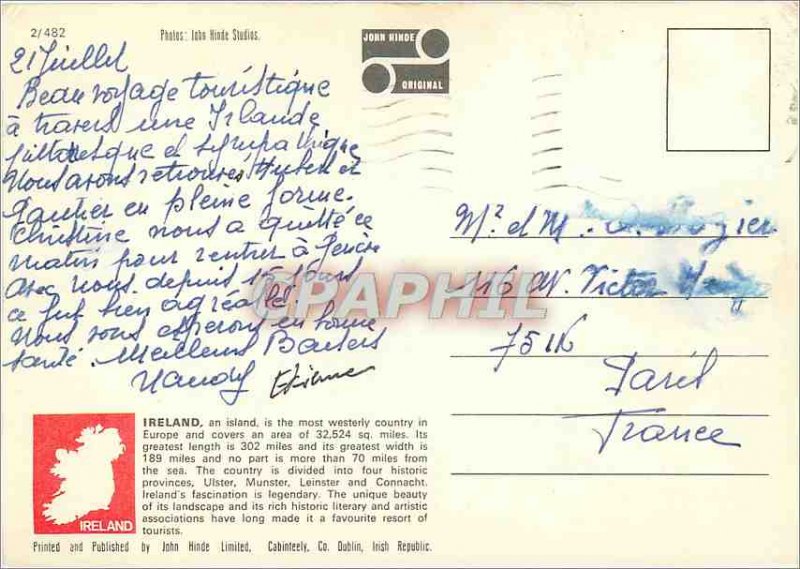 2/482
Photos: John Hinde Studios.
JOHN HINDE
ORIGINAL
21 Juillet
Beau voyage touristique
à travers une Irlande
pittoresque et sympathique
Nous avons retrouvés Hubert et
Gautier en pleine forme.
Christine nous a quitté ce
matin pour rentrer à
avec nous depuis 15 jours
ce fut bien agréable
Nous vous espérons en bonne
santé. Meilleurs Baisers
Etienne
Mr et M. Rozier
116 av. Victor Hugo
75116
Paris
France
CPAPHIL
IRELAND
IRELAND, an island, is the most westerly country in
Europe and covers an area of 32,524 sq. miles. Its
greatest length is 302 miles and its greatest width is
189 miles and no part is more than 70 miles from
the sea. The country is divided into four historic
provinces, Ulster, Munster, Leinster and Connacht.
Ireland's fascination is legendary. The unique beauty
of its landscape and its rich historic literary and artistic
associations have long made it a favourite resort of
tourists.
Printed and Published by John Hinde Limited, Cabinteely, Co. Dublin, Irish Republic.